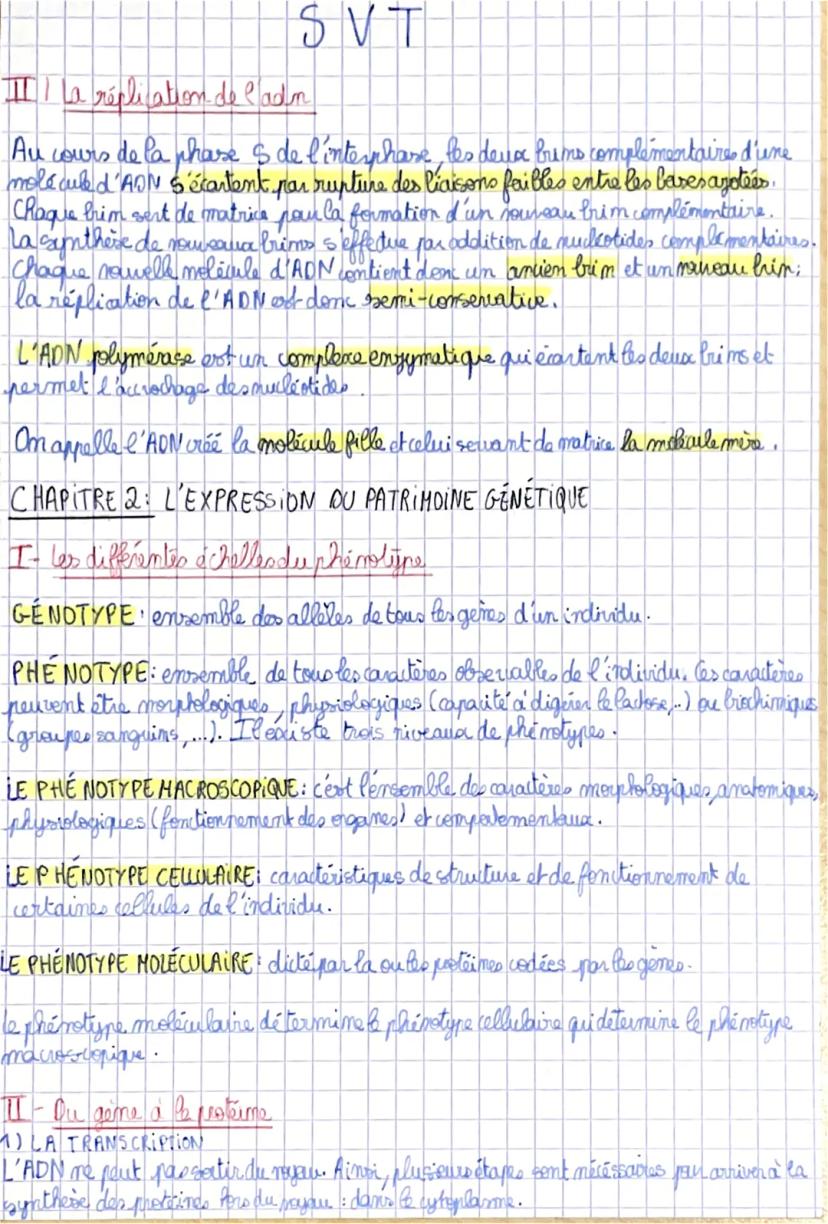 SVT
II / La réplication de l'adn
Au cours de la phase S de l'interphase, les deux brins complémentaires d'une
molécule d'ADN s'écartent par rupture des liaisons faibles entre les bases azotées.
Chaque brin sert de matrice pour la formation d'un nouveau brin complémentaire.
La synthèse de nouveaux brins s'effectue par addition de nucléotides complémentaires.
Chaque nouvelle molécule d'ADN contient donc un ancien brin et un nouveau brin;
la réplication de l'ADN est donc semi-conservative.
L'ADN polymérase est un complexe enzymatique qui écartent les deux brins et
permet l'accrochage des nucléotides.
On appelle l'ADN créé la molécule fille et celui servant de matrice la molécule mère.
CHAPITRE 2: L'EXPRESSION DU PATRIMOINE GÉNÉTIQUE
I- Les différentes échelles du phénotype
GÉNOTYPE: ensemble des allèles de tous les gènes d'un individu.
PHÉNOTYPE: ensemble de tous les caractères observables de l'individu. Ces caractères
peuvent être morphologiques, physiologiques (capacité à digérer le lactose,..) ou biochimiques
(groupes sanguins,...). Il existe trois niveaux de phénotypes.
LE PHÉNOTYPE MACROSCOPIQUE: c'est l'ensemble des caractères morphologiques, anatomiques,
physiologiques (fonctionnement des organes) et comportementaux.
LE PHÉNOTYPE CELLULAIRE: caractéristiques de structure et de fonctionnement de
certaines cellules de l'individu.
LE PHÉNOTYPE MOLÉCULAIRE: dicté par la ou les protéines codées par les gènes.
le phénotype moléculaire détermine le phénotype cellulaire qui détermine le phénotype
macroscopique.
II- Du gène à la protéine
1) LA TRANSCRIPTION
L'ADN ne peut pas sortir du noyau. Ainsi, plusieurs étapes sont nécessaires pour arriver à la
synthèse des protéines hors du noyau : dans le cytoplasme.